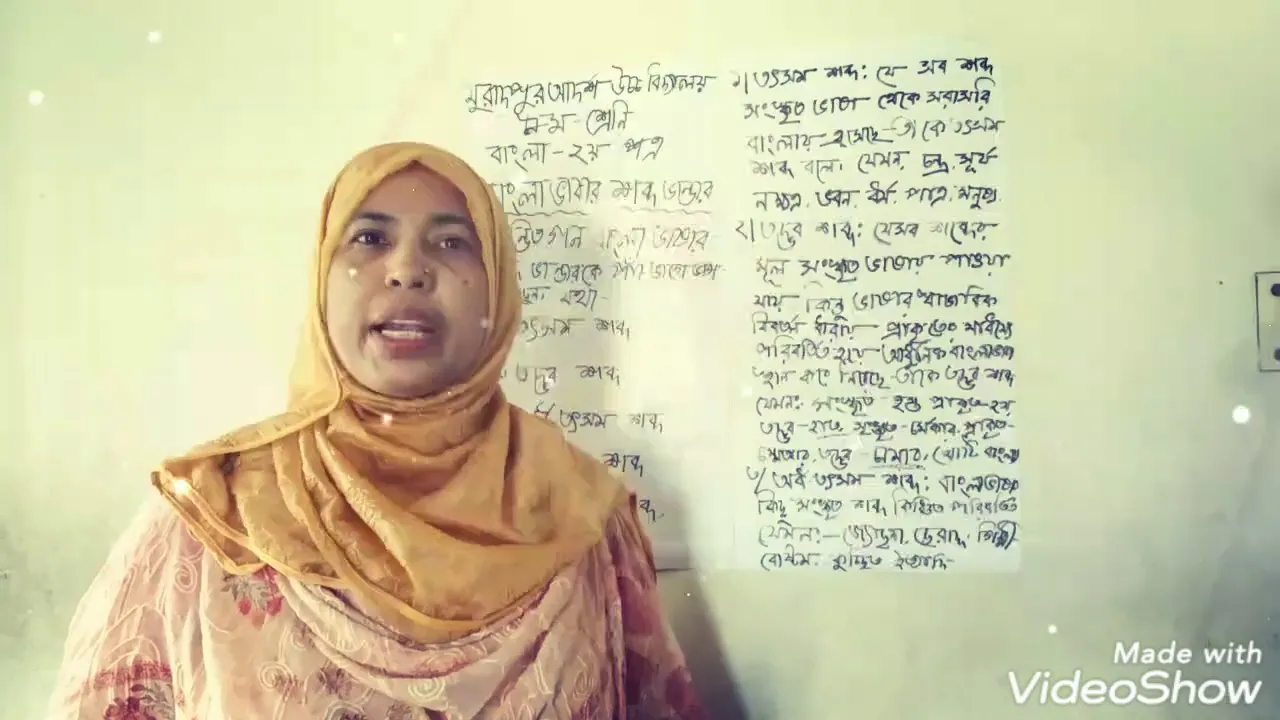 মুরাদপুর আদর্শ উচ্চ বিদ্যালয়
৯ম-শ্রেনি
বাংলা-২য় পত্র
বাংলা ভাষার শব্দ ভান্ডার
বাংলা ভাষার
ভান্ডারকে পাঁচ ভাগে ভাগ
যথা-
তৎসম শব্দ
তদ্ভব শব্দ
তৎসম শব্দ
শব্দ
১/ তৎসম শব্দ: যে সব শব্দ
সংস্কৃত ভাষা থেকে সরাসরি
বাংলায় এসেছে তাকে তৎসম
শব্দ বলে। যেমন, চন্দ্র, সূর্য
নক্ষত্র, ভবন, ধর্ম, পাত্র, মনুষ্য
২/ তদ্ভব শব্দ: যেসব শব্দের
মূল সংস্কৃত ভাষায় পাওয়া
যায় কিন্তু ভাষার স্বাভাবিক
বিবর্তন ধারায় প্রাকৃতের মাধ্যমে
পরিবর্তিত হয়ে আধুনিক বাংলা
স্থান করে নিয়েছে তাকে তদ্ভব শব্দ
যেমন: সংস্কৃত হস্ত প্রাকৃত হত্থ
তদ্ভব-হাত, সংস্কৃত-চর্মকার, প্রাকৃত-
তদ্ভব চামার, খাঁটি বাংলা
৩/ অর্ধ তৎসম শব্দ: বাংলাভাষায়
কিছু সংস্কৃত শব্দ কিঞ্চিত পরিবর্তিত
যেমন:- জ্যোছনা, ছেরাদ্দ, গিন্নী
বোষ্টম, কুচ্ছিত ইত্যাদি
Made with
VideoShow